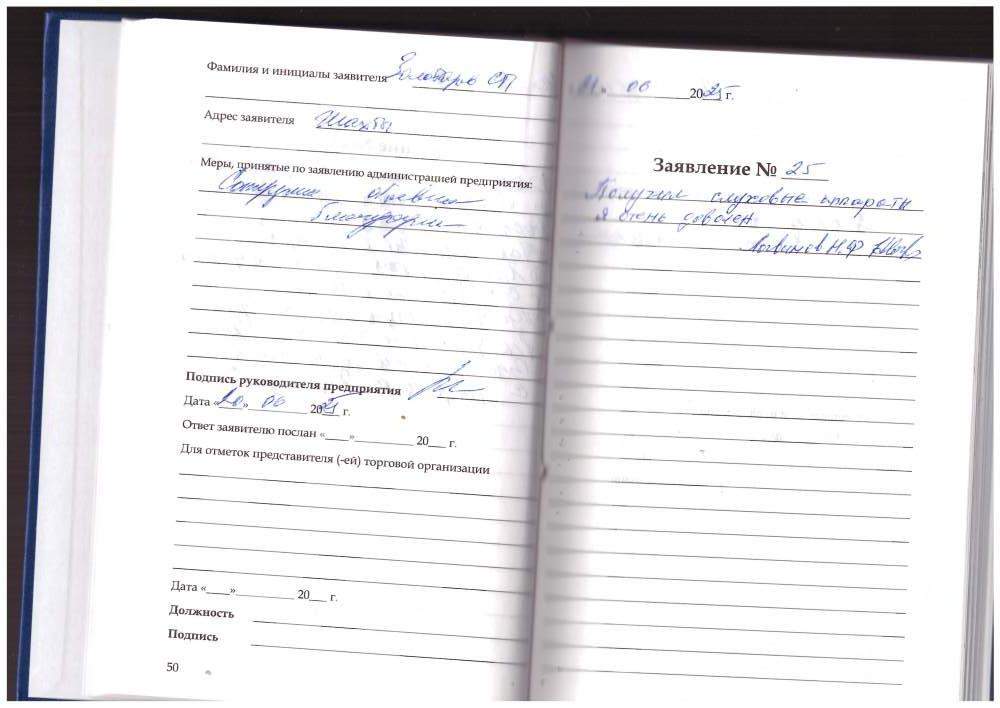 Фамилия и инициалы заявителя СП
Адрес заявителя Шахты
Меры, принятые по заявлению администрацией предприятия:
Подпись руководителя предприятия
Дата «20» 06 2025 г.
Ответ заявителю послан «____»__________ 20___ г.
Для отметок представителя (-ей) торговой организации
Дата «____»__________ 20___ г.
Должность
Подпись
50
» 06 2025 г.
Заявление № 25
Получил слуховые аппараты
я очень доволен
Логвинов Н.Ф